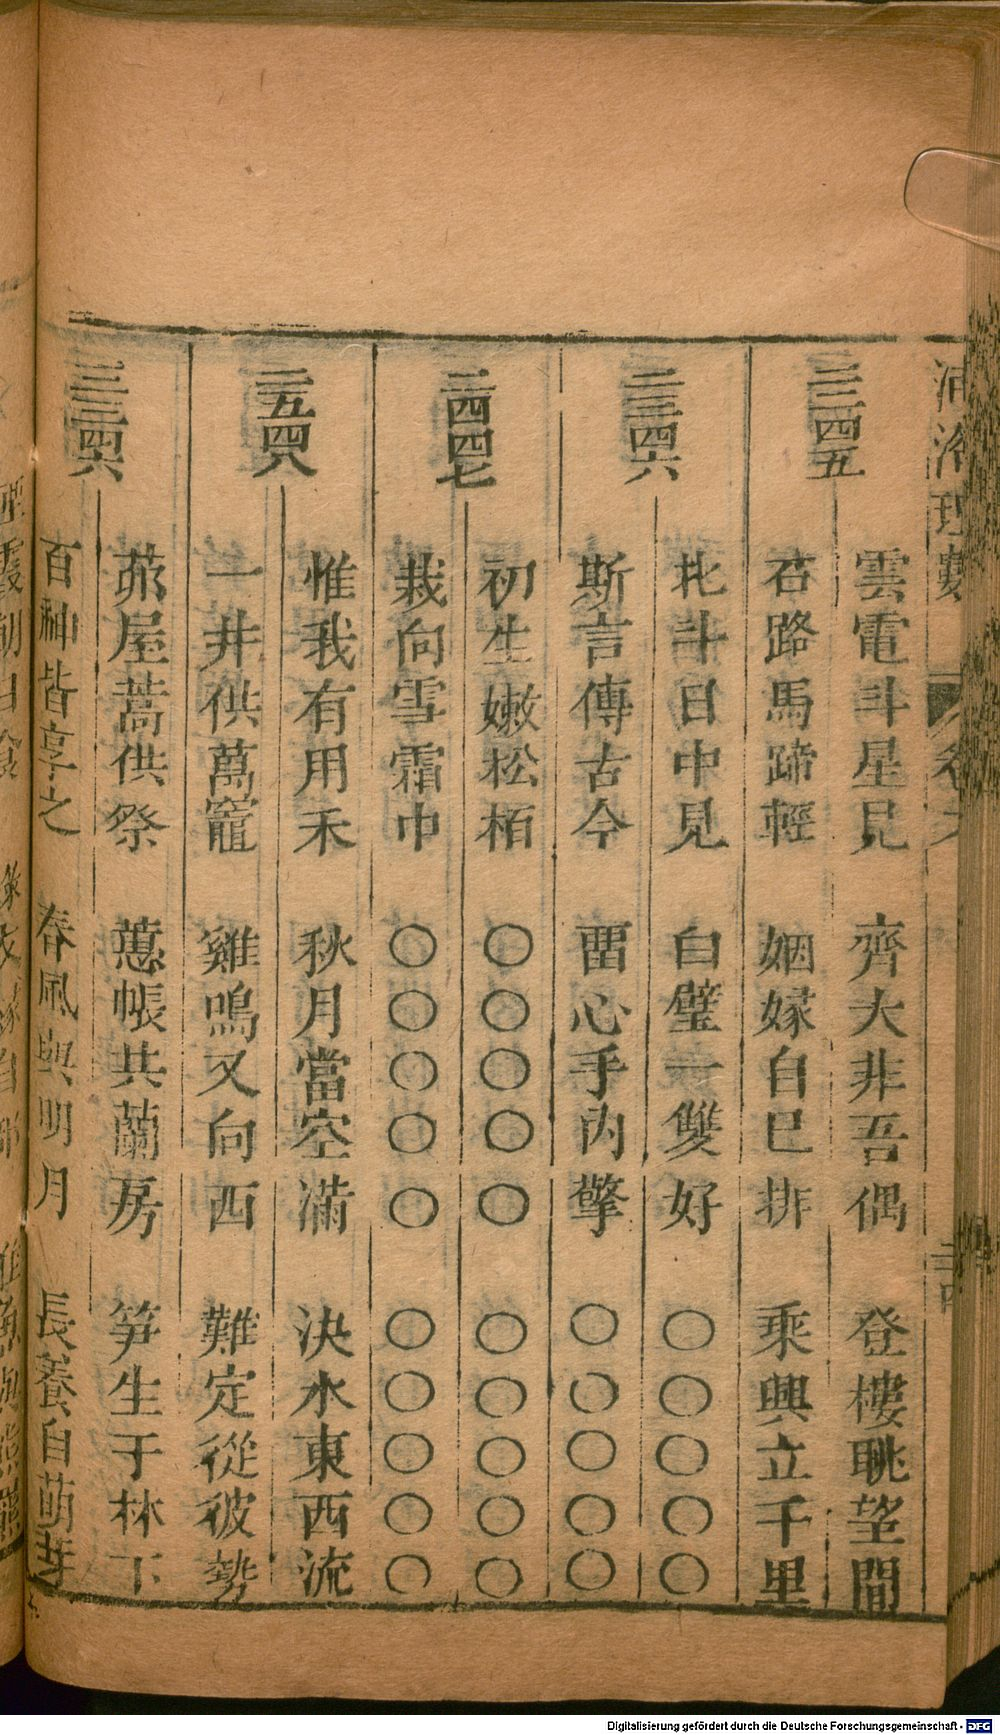 河洛理數 卷六
二三四五
雲電斗星見 齊大非吾偶 登樓眺望間
召路馬蹄輕 姻嫁自巳排 乘興立千里
二三四六
北斗日中見 白璧一雙好 ○○○○○
斯言傳古今 留心手內擎 ○○○○○
二四四七
初生嫩松栢 ○○○○○ ○○○○○
栽向雪霜中 ○○○○○ ○○○○○
二五四八
惟我有用禾 秋月當空滿 決水東西流
一井供萬竈 雞鳴又向西 難定從彼勢
三三四六
茆屋蒿供祭 蕙帳共蘭房 笋生于林下
百神皆享之 春風與明月 長養自萌芽
Digitalisierung gefördert durch die Deutsche Forschungsgemeinschaft - DFG